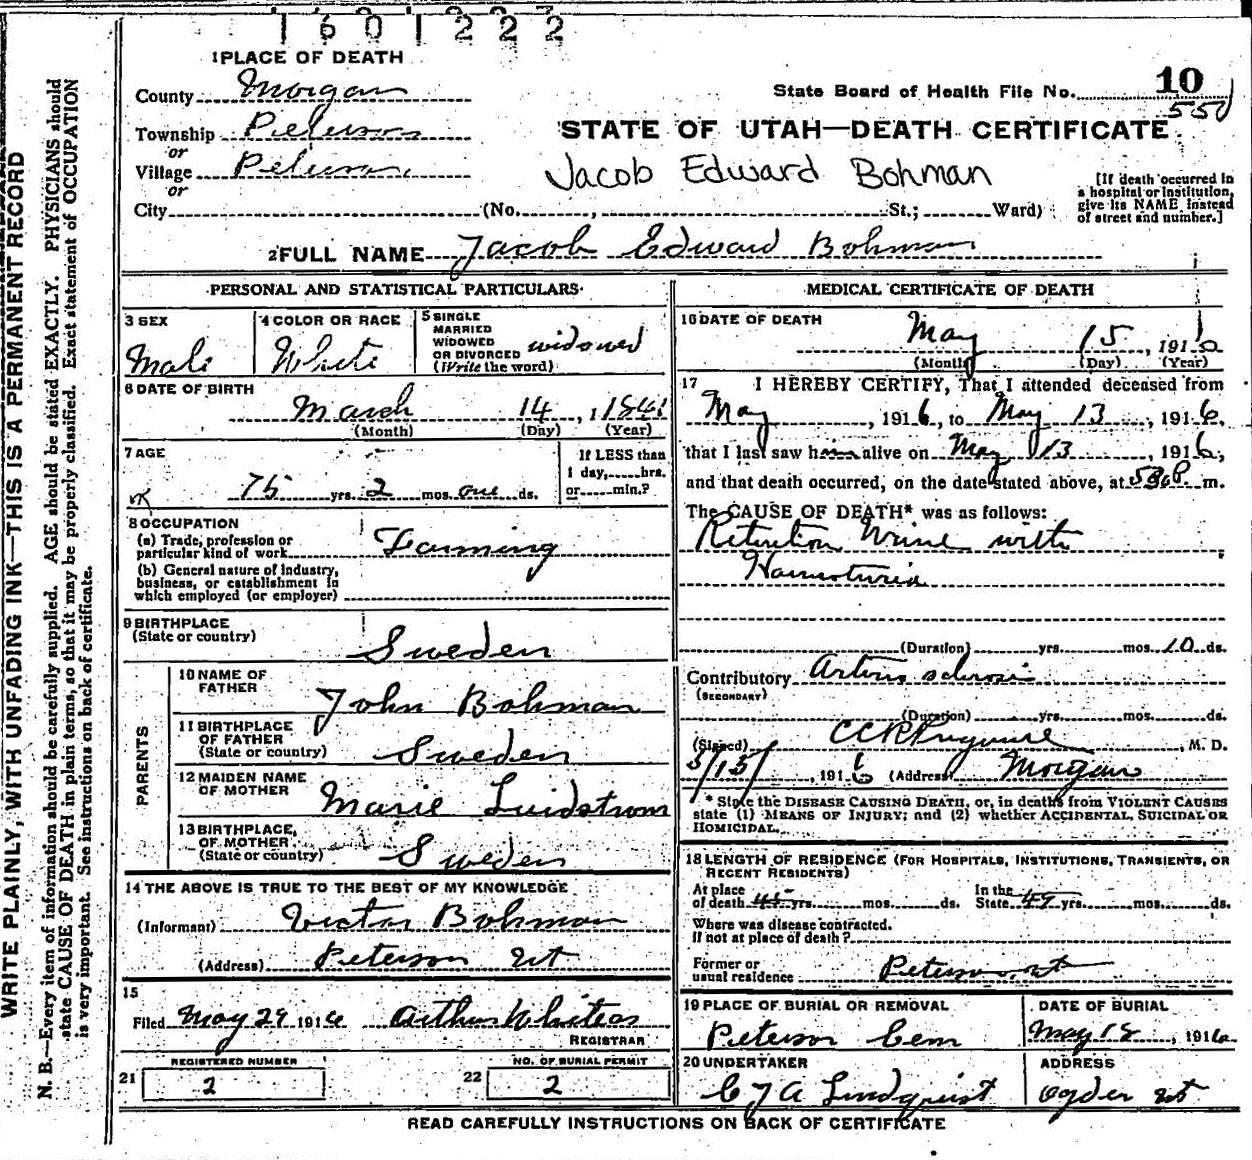 1601222
1 PLACE OF DEATH
County Morgan
State Board of Health File No. 10
550
Township Peterson
or
STATE OF UTAH—DEATH CERTIFICATE
Village Peterson
or
Jacob Edward Bohman
[If death occurred in a hospital or institution, give its NAME instead of street and number.]
City (No. , St.; Ward)
2 FULL NAME Jacob Edward Bohman
PERSONAL AND STATISTICAL PARTICULARS
3 SEX
Male
4 COLOR OR RACE
White
5 SINGLE
MARRIED
WIDOWED
OR DIVORCED
(Write the word)
widowed
6 DATE OF BIRTH
March 14, 1841
(Month) (Day) (Year)
7 AGE
75 yrs. 2 mos. one ds.
If LESS than
1 day, hrs.
or min.?
8 OCCUPATION
(a) Trade, profession or
particular kind of work Farming
(b) General nature of Industry,
business, or establishment in
which employed (or employer)
9 BIRTHPLACE
(State or country) Sweden
PARENTS
10 NAME OF
FATHER John Bohman
11 BIRTHPLACE
OF FATHER
(State or country) Sweden
12 MAIDEN NAME
OF MOTHER Marie Lindstrom
13 BIRTHPLACE,
OF MOTHER
(State or country) Sweden
14 THE ABOVE IS TRUE TO THE BEST OF MY KNOWLEDGE
(Informant) Victor Bohman
(Address) Peterson Ut
15
Filed May 29 1916 Arthur Whitear
REGISTRAR
REGISTERED NUMBER
21 2
NO. OF BURIAL PERMIT
22 2
MEDICAL CERTIFICATE OF DEATH
16 DATE OF DEATH
May 15, 1916
(Month) (Day) (Year)
17 I HEREBY CERTIFY, That I attended deceased from
May , 1916, to May 13, 1916.
that I last saw him alive on May 13, 1916,
and that death occurred, on the date stated above, at m.
The CAUSE OF DEATH* was as follows:
Retention Urine with
Haematuria
(Duration) yrs. mos. 10 ds.
Contributory Arterio sclerosis
(SECONDARY)
(Duration) yrs. mos. ds.
(Signed) , M. D.
5/15/, 1916 (Address) Morgan
* State the DISEASE CAUSING DEATH, or, in deaths from VIOLENT CAUSES
state (1) MEANS OF INJURY; and (2) whether ACCIDENTAL, SUICIDAL OR
HOMICIDAL.
18 LENGTH OF RESIDENCE (FOR HOSPITALS, INSTITUTIONS, TRANSIENTS, OR
RECENT RESIDENTS)
At place
of death 45 yrs. mos. ds. In the State 49 yrs. mos. ds.
Where was disease contracted.
If not at place of death?
Former or
usual residence Peterson, ut
19 PLACE OF BURIAL OR REMOVAL
Peterson Cem
DATE OF BURIAL
May 18, 1916
20 UNDERTAKER
C J A Lindquist
ADDRESS
Ogden Ut
READ CAREFULLY INSTRUCTIONS ON BACK OF CERTIFICATE
WRITE PLAINLY, WITH UNFADING INK—THIS IS A PERMANENT RECORD
N. B.—Every item of information should be carefully supplied. AGE should be stated EXACTLY. PHYSICIANS should
state CAUSE OF DEATH in plain terms, so that it may be properly classified. Exact statement of OCCUPATION
is very important. See instructions on back of certificate.